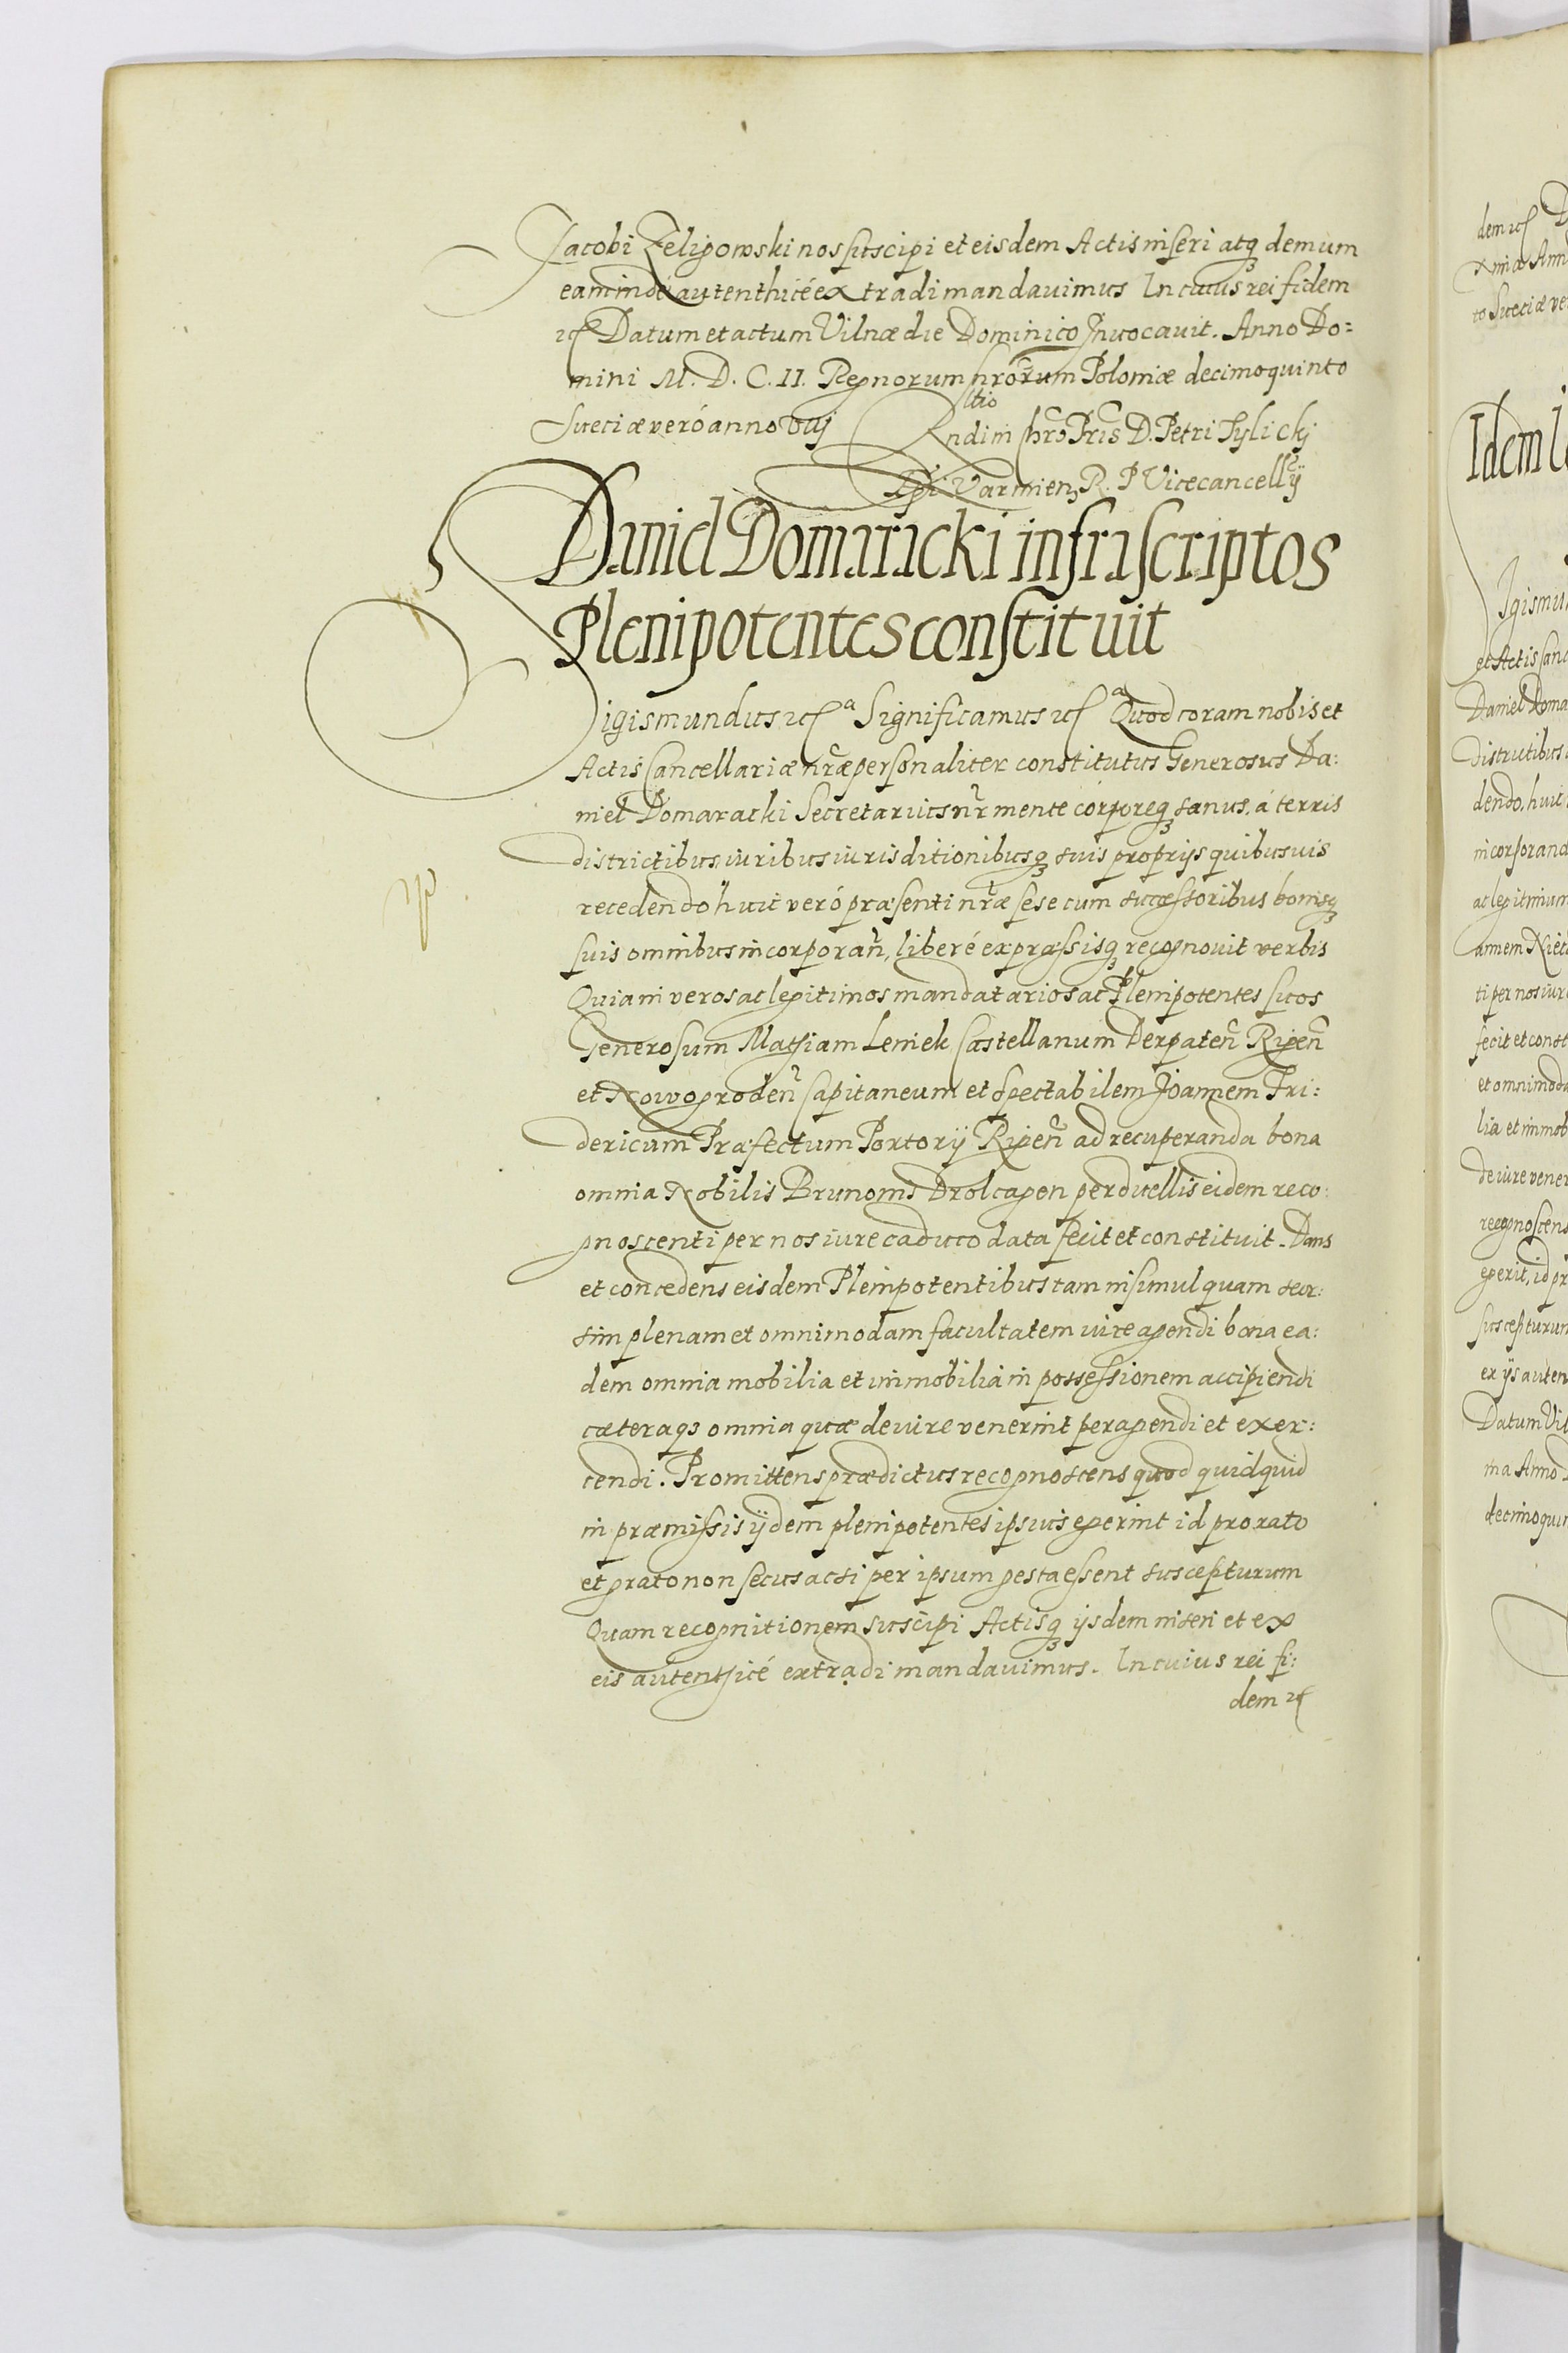 Jacobi Zeligowski nos suscipi et eisdem Actis inseri atq demum
eam inde autenthicé extradi mandavimus In cuius rei fidem
Datum et actum Vilnæ die Dominico Invocavit. Anno Do=
mini M. D. C. II. Regnorum nrorum Poloniæ decimoquinto
Sueciæ veró anno viij
Rndi in Chro Pris D. Petri Tylickj
Epi Varmien R. P Vicecancellij
Daniel Domaracki infrascriptos
Plenipotentes constituit
Sigismundus Significamus Quod coram nobis et
Actis Cancellariæ nræ personaliter constitutus Generosus Da:
niel Domaracki Secretarius nr mente corporeq sanus, á terris
districtibus iuribus iurisditionibusq suis proprijs quibusuis
recedendo huic veró præsenti nræ sese cum successoribus bonisq
suis omnibus incorporan, liberé expressisq recognovit verbis
Quia ni veros ac legitimos mandatarios ac Plenipotentes suos
Generosum Mathiam Leniek Castellanum Derpaten Rigen
et Nowogroden Capitaneum et Spectabilem Joannem Fri:
dericum Præfectum Portorij Rigen ad recuperanda bona
omnia Nobilis Brunonis Drolcagen perduellis eidem reco:
gnoscenti per nos iure caduco data fecit et constituit. Dans
et concedens eisdem Plenipotentibus tam insimul quam seor:
sim plenam et omnimodam facultatem iure agendi bona ea:
dem omnia mobilia et immobilia in possessionem accipiendi
cæteraqs omnia quæ de iure venerint peragendi et exer:
cendi. Promittens prædictus recognoscens quod quidquid
in præmissis ijdem plenipotentes ipsius egerint id pro rato
et grato non secus ac si per ipsum gesta essent suscepturum
Quam recognitionem suscipi Actisq ijsdem inseri et ex
eis autenthicé extradi mandavimus. In cuius rei fi:
dem